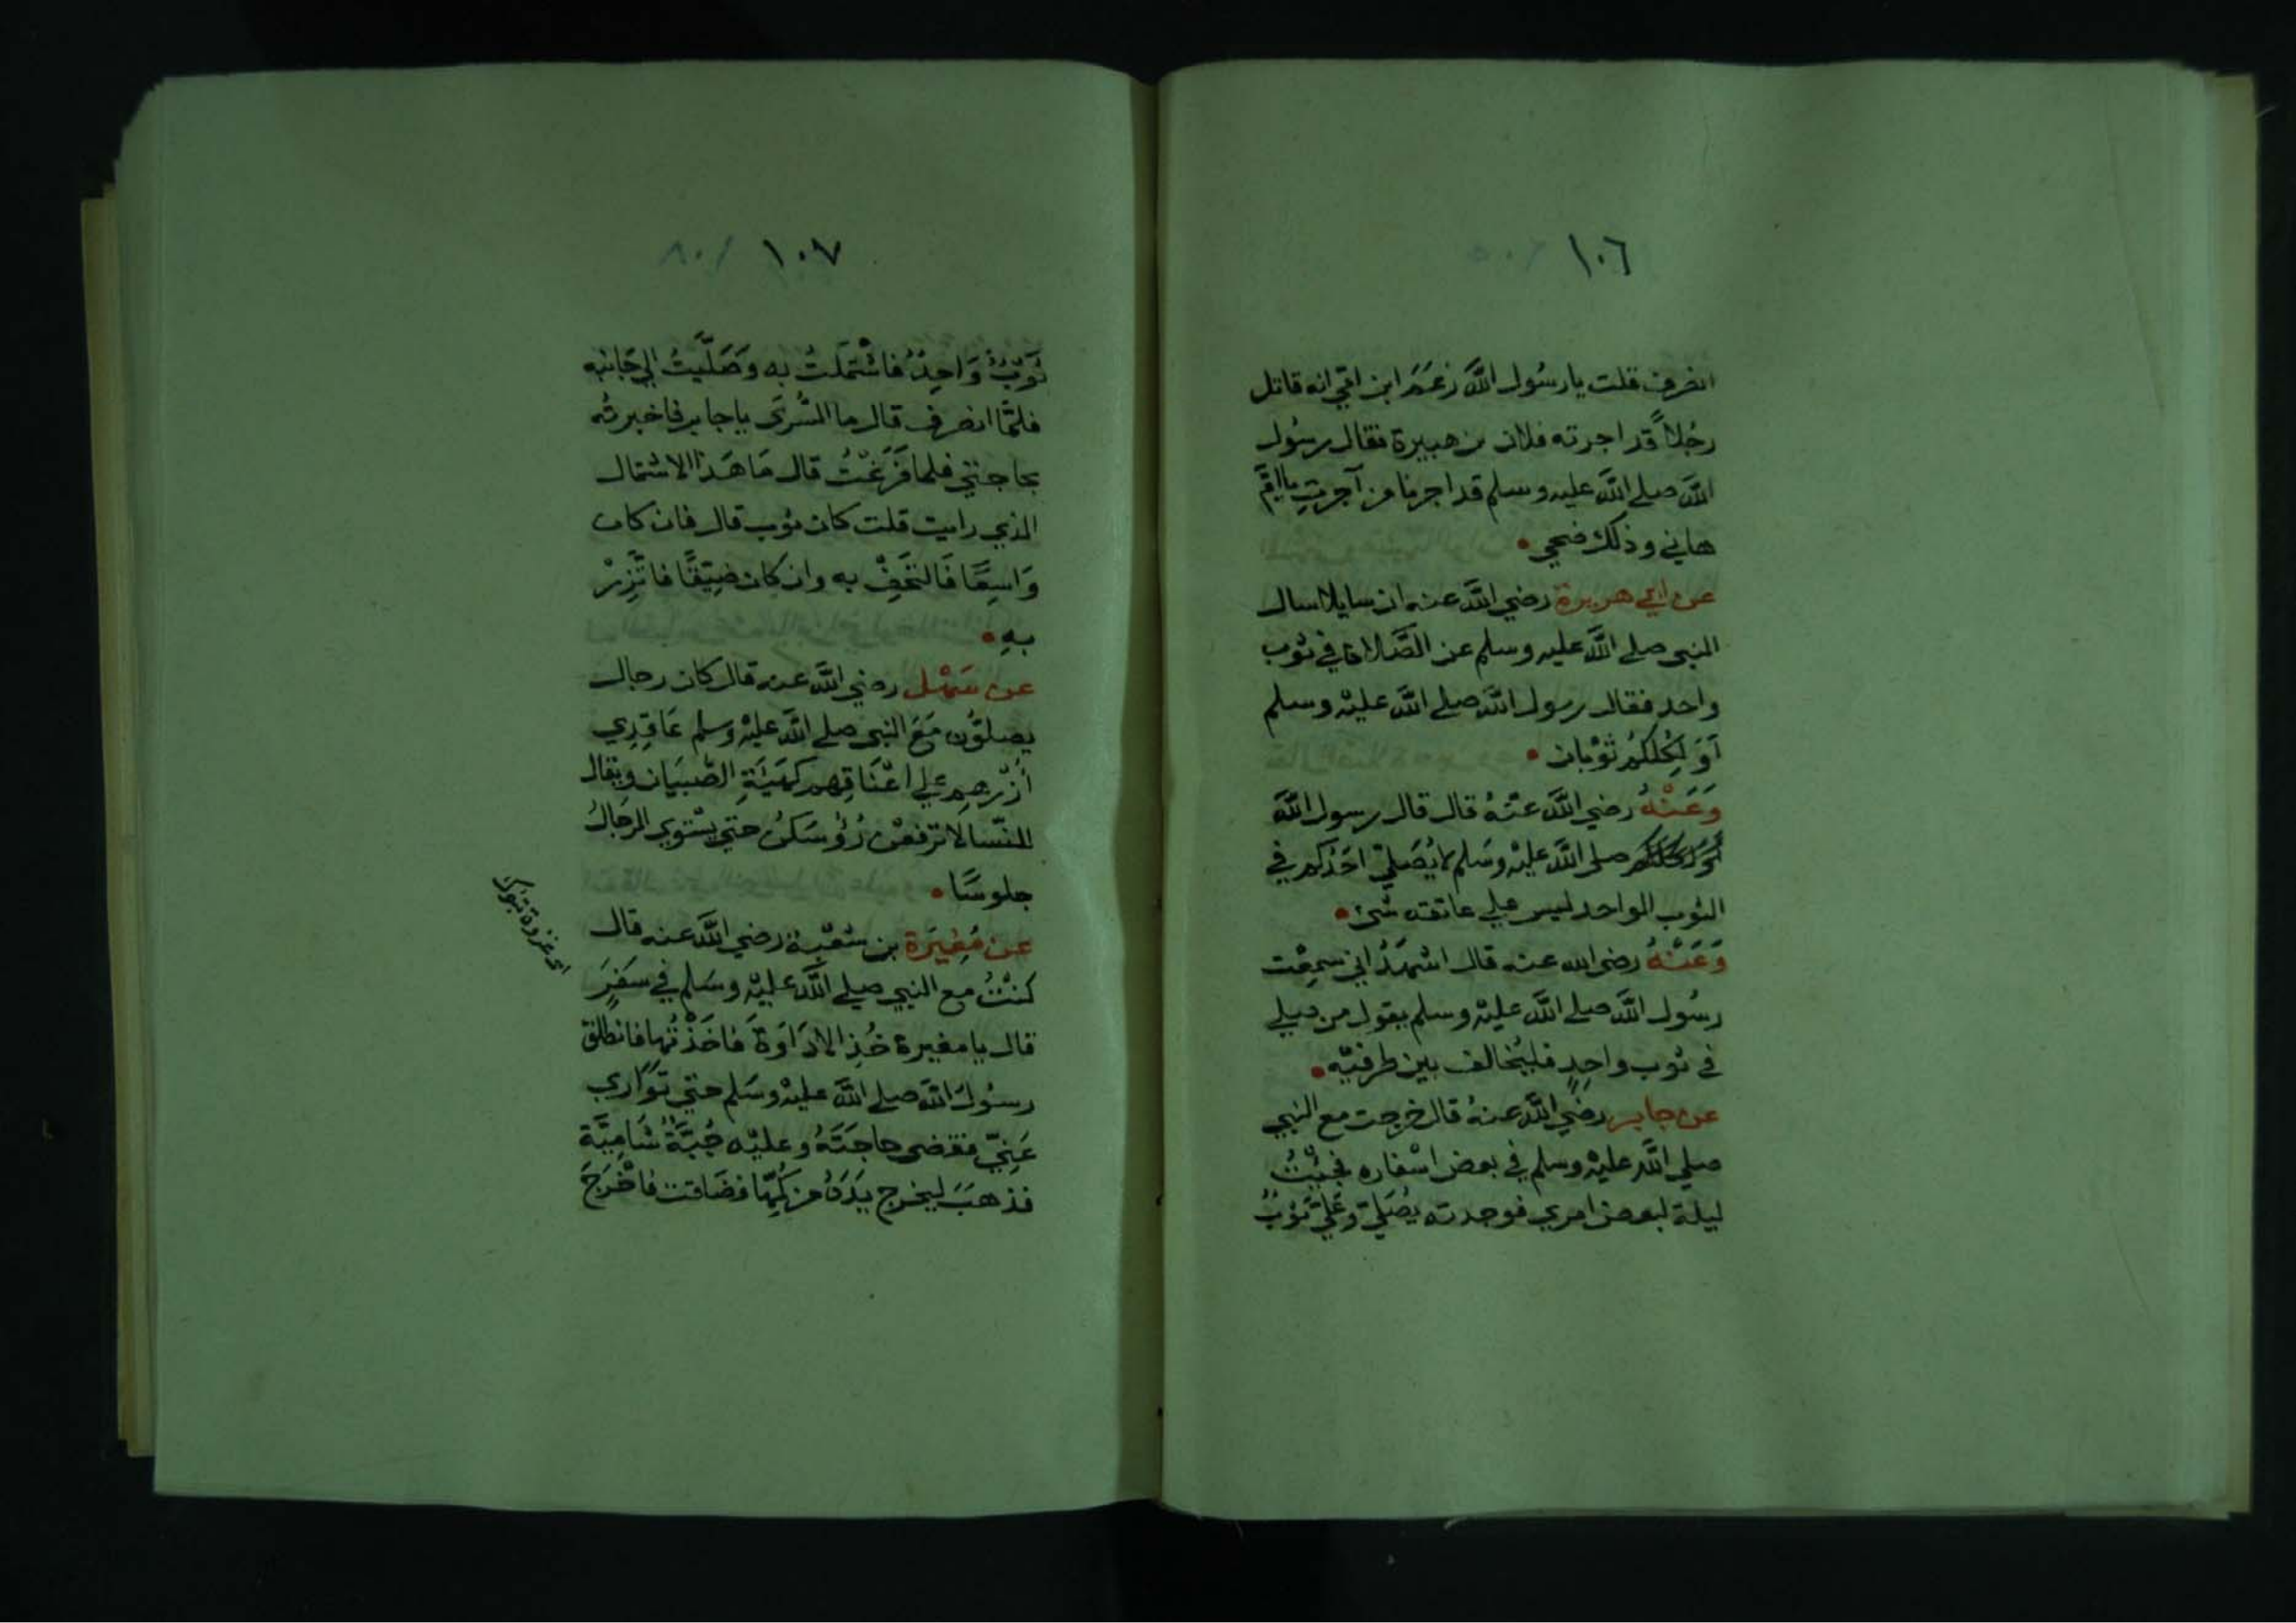 ١٠٦
انصرف قلت يا رسُول اللَّه زعَمَ ابن امّي انه قاتل
رجُلاً قد اجرته فلان بن هبيرة فقال رسُول
اللَّه صلى اللَّه عليه وسلم قد اجرنا من آجرتِ يا امّ
هاني وذلك ضحى •
عن ابي هريرة رضي اللَّه عنه ان سايلا سال
النبي صلى اللَّه عليه وسلم عن الصَّلاة في ثوب
واحد فقال رسول اللَّه صلى اللَّه عليْه وسلم
أوَ لِكُلكُم ثوْبان •
وَعَنْهُ رضي اللَّه عنْهُ قال قال رسول اللَّه
صلى اللَّه عليْه وسَلم لا يُصَلي احَدُكم في
الثوب الواحد ليس علي عاتقه شئ •
وَعَنْهُ رضي الله عنه قال اشهَدُ اني سمِعْت
رسُول اللَّه صلى اللَّه عليْه وسلم يقول من صلي
في ثوب واحِدٍ فليُخالف بين طرفيْه •
عن جابر رضي اللَّه عنهُ قال خرجت مع النبي
صلى اللَّه عليْه وسلم في بعض اسْفاره فجئْتُ
ليلة لبعض امري فوجدته يُصَلي وعَليَّ ثوْبٌ
١٠٧
ثَوْبٌ وَاحِدٌ فاشْتمَلتُ به وَصَلَّيتُ إلى جَانبه
فلمَّا انصرف قال ما السُّرَى يا جابر فاخبرتُه
بحاجتي فلما فَرَغْتُ قال مَا هَذا الاشتمال
الذي رايت قلت كان ثوب قال فان كان
وَاسِعًا فَالتَحِفْ به وان كان ضيّقًا فاتَّزِرْ
بهِ •
عن سَهْل رضي اللَّه عنه قال كان رجال
يصلوُن مَعَ النبي صلى اللَّه عليْه وسلم عَاقِدِي
أُزْرهِم علي اعْنَاقِهم كهَيْئَةِ الصِّبيَان ويقال
للنّسا لا ترفعْن رُؤُسَكنُ حتي يسْتوي الرجَالُ
جلوسًا •
عن مُغِيرَة بن شعْبة رضي اللَّه عنه قال
كنْتُ مع النبي صلى اللَّه عليْه وسَلم في سَفرٍ
اى غزوة تبوك
قال يا مغيرة خُذِ الادَاوَةَ فَاخَذْتُها فانطلق
رسُولُ اللَّه صلى اللَّه عليْه وسَلم حتي تَوَاري
عَنِيّ فقضى حاجَتَهُ وعليْه جُبَّةٌ شَامِيَّة
فذهبَ ليخرج يَدَهُ من كُمِّهَا فضَاقت فاخْرَجَ